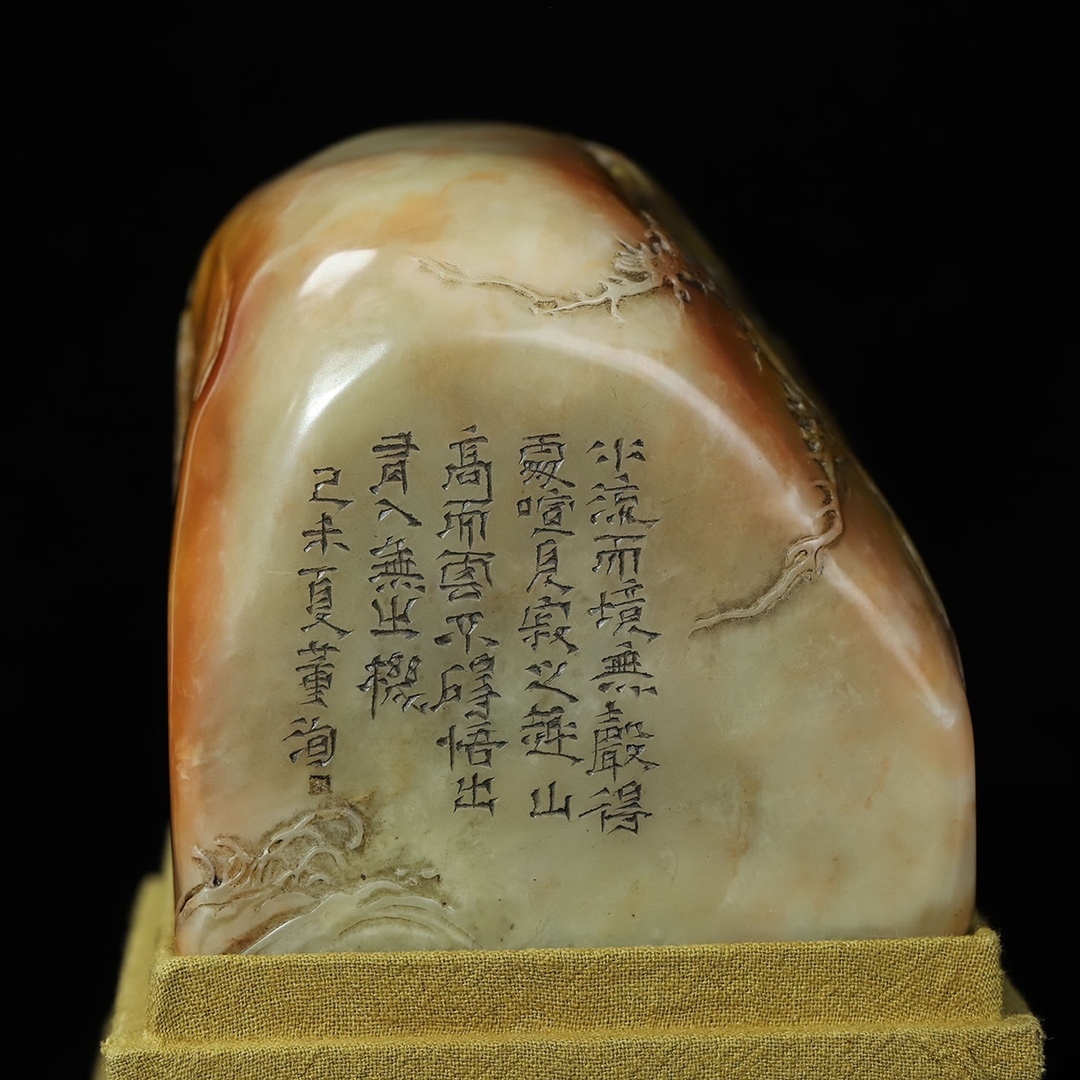 水流而境無聲得
處喧見寂之趣山
高而雲不碍悟出
有入無之機
己未夏董洵